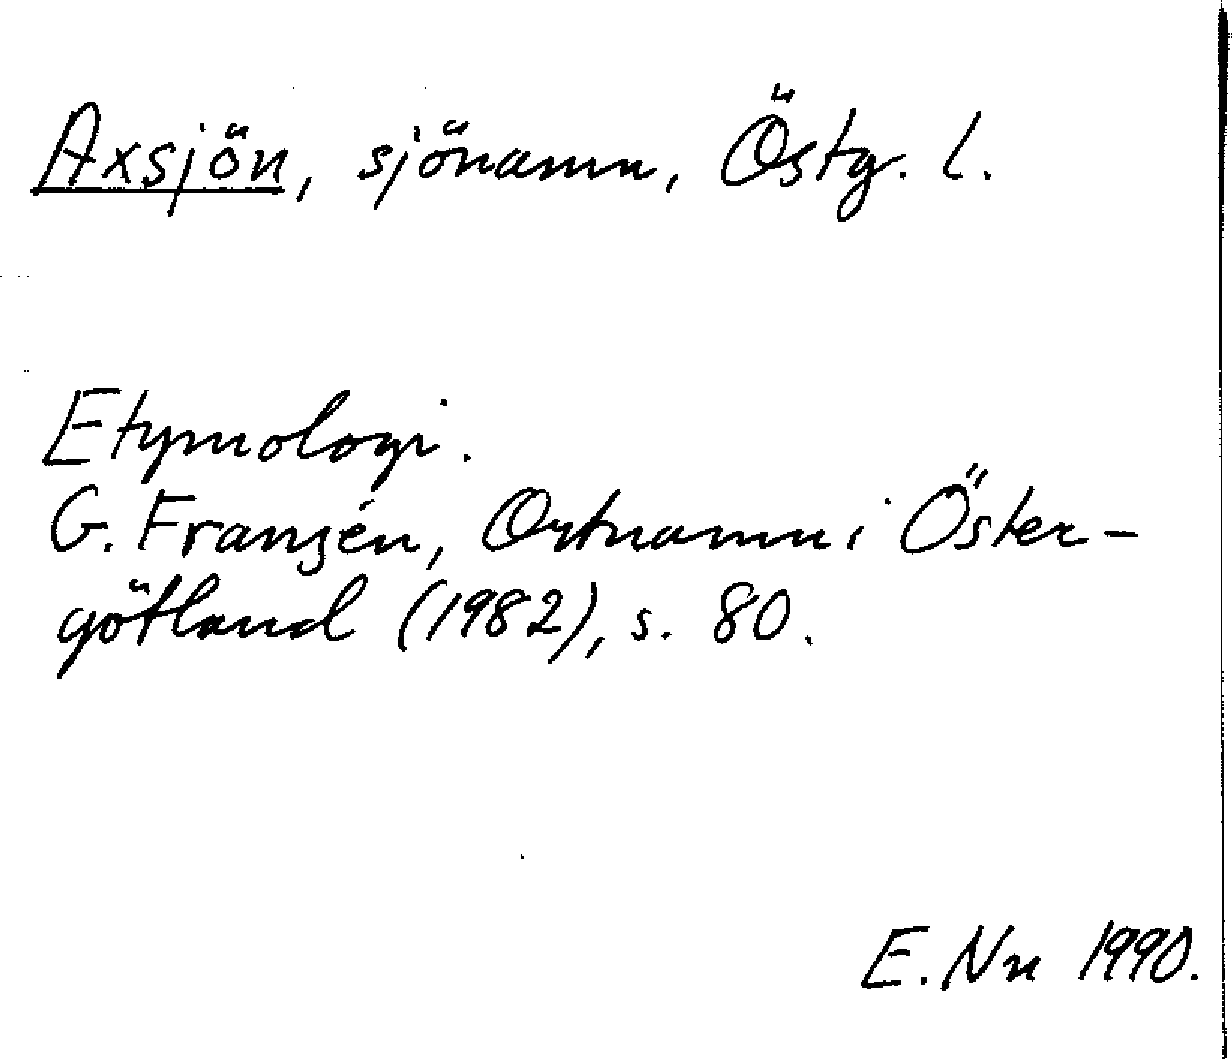 Axsjön, sjönamn, Östg. l.
Etymologi.
G. Franzén, Ortnamn i Öster-
götland (1982), s. 80.
E. Nn 1990.